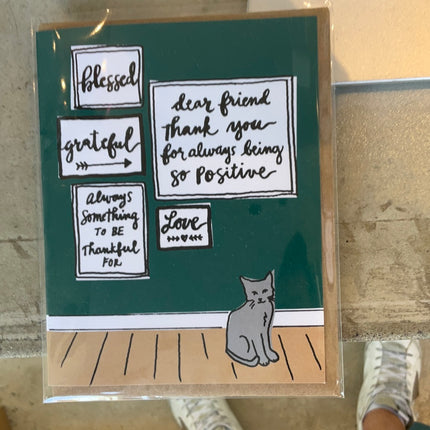 blessed
grateful
Always
Something
TO BE
Thankful
FOR
dear friend
Thank you
for always being
so positive
Love